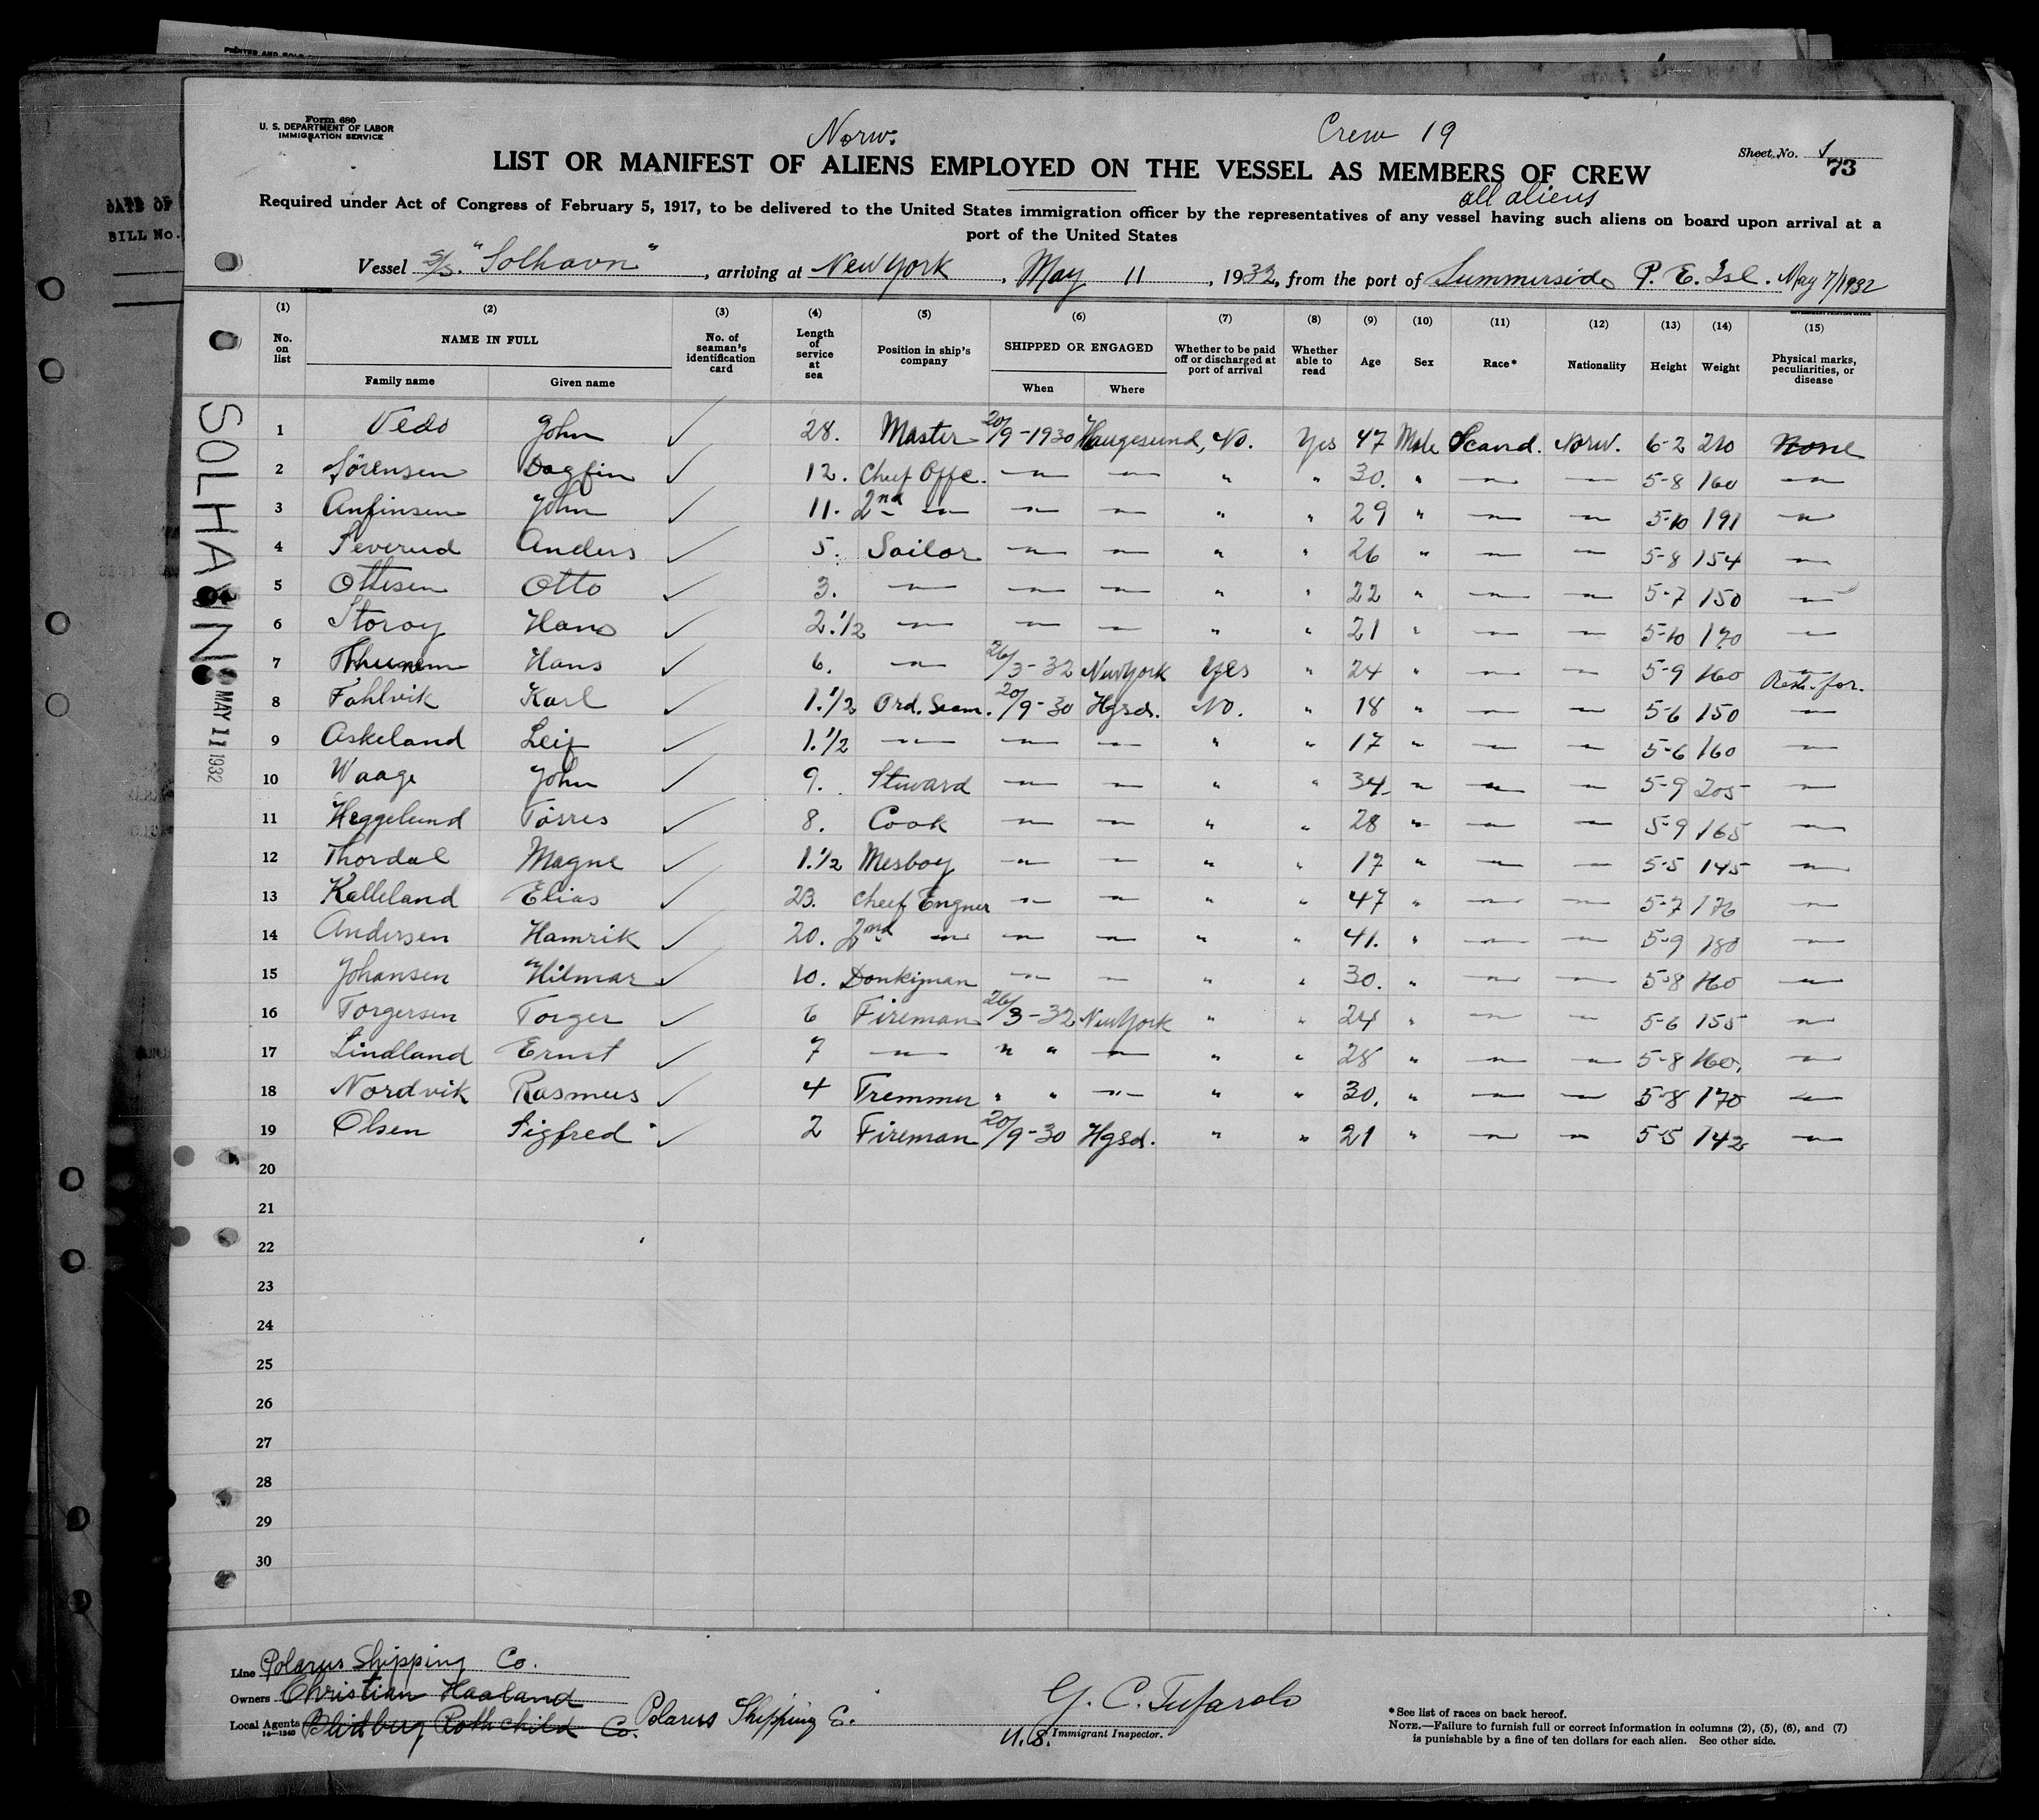 Form 680
U. S. DEPARTMENT OF LABOR
IMMIGRATION SERVICE
Norw.
Crew 19
Sheet No. 1
73
LIST OR MANIFEST OF ALIENS EMPLOYED ON THE VESSEL AS MEMBERS OF CREW
all aliens
Required under Act of Congress of February 5, 1917, to be delivered to the United States immigration officer by the representatives of any vessel having such aliens on board upon arrival at a
port of the United States
Vessel S/S. "Solhavn", arriving at New York, May 11, 1932, from the port of Summerside P. E. Isl. May 7/1932
(1) (2) (3) (4) (5) (6) (7) (8) (9) (10) (11) (12) (13) (14) (15)
No. on list NAME IN FULL No. of seaman's identification card Length of service at sea Position in ship's company SHIPPED OR ENGAGED Whether to be paid off or discharged at port of arrival Whether able to read Age Sex Race* Nationality Height Weight Physical marks, peculiarities, or disease
Family name Given name When Where
1 Vedo John ✓ 28. Master 20/9-1930 Haugesund, No. Yes 47 Male Scand. Norw. 6-2 210 None
2 Sörensen Dagfin ✓ 12. Cheef Offc. —"— —"— " " 30. " —"— —"— 5-8 160 —"—
3 Anfinsen John ✓ 11. 2nd —"— —"— —"— " " 29 " —"— —"— 5-10 191 —"—
4 Severud Anders ✓ 5. Sailor —"— —"— " " 26 " —"— —"— 5-8 154 —"—
5 Ottesen Otto ✓ 3. —"— —"— —"— " " 22 " —"— —"— 5-7 150 —"—
6 Storoy Hans ✓ 2.1/2 —"— —"— —"— " " 21 " —"— —"— 5-10 170 —"—
7 Hans ✓ 6. —"— 26/3-32 New York Yes " 24 " —"— —"— 5-9 160 —"—
8 Fahlvik Karl ✓ 1.1/2 Ord. Seam. 20/9-30 Hgsd. No. " 18 " —"— —"— 5-6 150 —"—
9 Askeland Leif ✓ 1.1/2 —"— —"— —"— " " 17 " —"— —"— 5-6 160 —"—
10 Waage John ✓ 9. Steward —"— —"— " " 34. —"— —"— —"— 5-9 205 —"—
11 Heggelund Torres ✓ 8. Cook —"— —"— " " 28 " —"— —"— 5-9 165 —"—
12 Thordal Magne ✓ 1.1/2 Mesboy —"— —"— " " 17 " —"— —"— 5-5 145 —"—
13 Kalleland Elias ✓ 23. Cheef Engner —"— —"— " " 47 " —"— —"— 5-7 176 —"—
14 Andersen Hamrik ✓ 20. 2nd —"— —"— —"— " " 41. " —"— —"— 5-9 180 —"—
15 Johansen Hilmar ✓ 10. Donkiman —"— —"— " " 30. " —"— —"— 5-8 160 —"—
16 Torgersen Torger ✓ 6 Fireman 26/3-32 New York " " 24 " —"— —"— 5-6 155 —"—
17 Lindland Ernst ✓ 7 —"— " " —"— " " 28 " —"— —"— 5-8 160. —"—
18 Nordvik Rasmus ✓ 4 Tremmer " " —"— " " 30. " —"— —"— 5-8 170 —"—
19 Olsen Sigfred ✓ 2 Fireman 20/9-30 Hgsd. " " 21 " —"— —"— 5-5 142 —"—
20
21
22
23
24
25
26
27
28
29
30
SOLHAVN
MAY 11 1932
Line Polarus Shipping Co.
Owners Christian Haaland
Local Agents Rothchild Co. Polarus Shipping C.
16—1240
G. C. Tufarolo
U.S. Immigrant Inspector.
*See list of races on back hereof.
NOTE.—Failure to furnish full or correct information in columns (2), (5), (6), and (7)
is punishable by a fine of ten dollars for each alien. See other side.
DATE OF
BILL No.